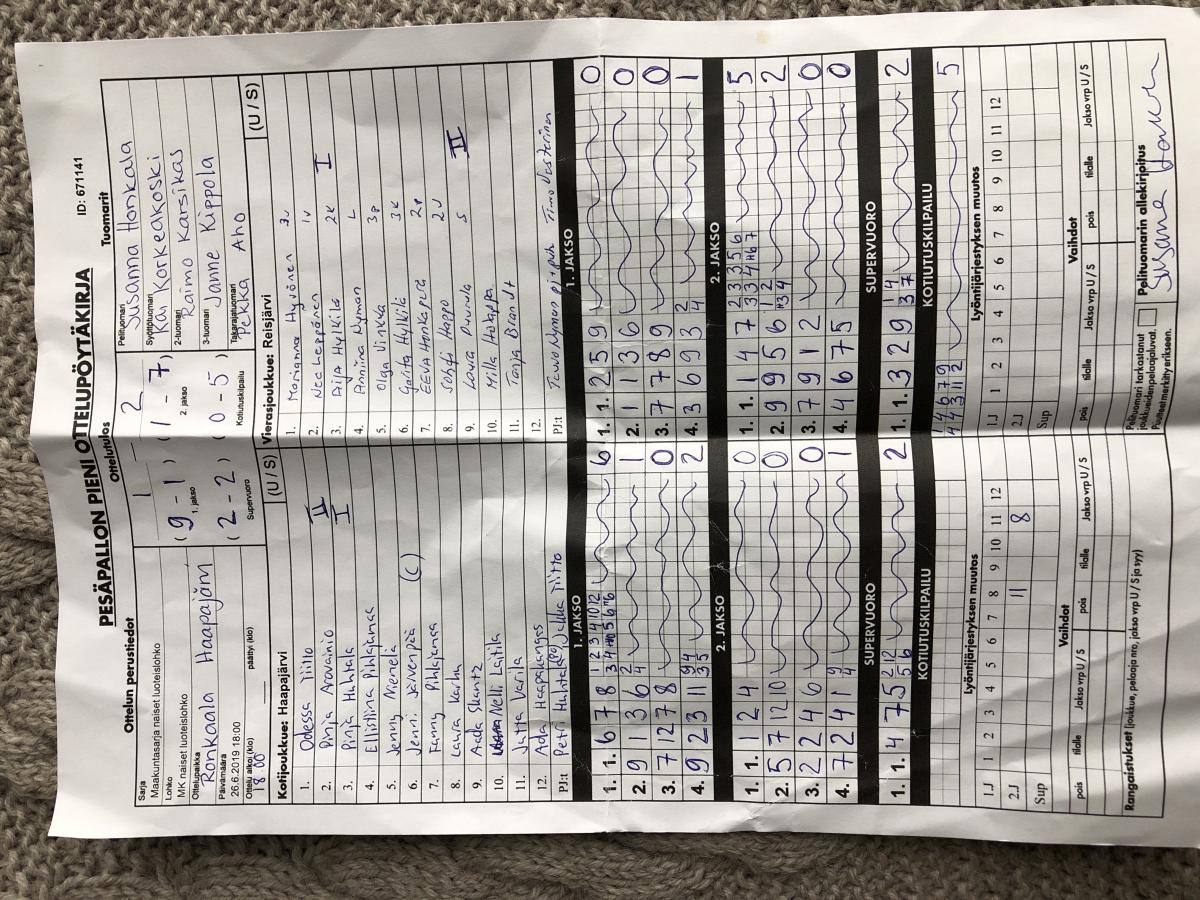 PESÄPALLON PIENI OTTELUPÖYTÄKIRJA
ID: 671141
Ottelun perustiedot
Sarja
Maakuntasarja naiset luoteislohko
Lohko
MK naiset luoteislohko
Ottelupaikka
Ronkaala Haapajärvi
Päivämäärä
26.6.2019 18:00
Ottelu alkoi (klo) päättyi (klo)
18.00
Ottelutulos
1 - 2
(9 - 1) (1 - 7)
1. jakso 2. jakso
(2 - 2) (0 - 5)
Supervuoro Kotiutuskilpailu
Tuomarit
Pelituomari
Susanna Honkala
Syöttötuomari
Kai Korkeakoski
2-tuomari
Raimo Karsikas
3-tuomari
Janne Kippola
Takarajatuomari
Pekka Aho
Kotijoukkue: Haapajärvi (U / S)
1. Odessa Tiitto
2. Pinja Aravainio II
3. Pinja Huhtala I
4. Ellistiina Pihlajamaa
5. Jenny Niemelä
6. Jenni Järvenpää (C)
7. Fanny Pihlajamaa
8. Laura Karhu
9. Ada Skantz
10. Nelli Laitila
11. Jutta Varila
12. Ada Haapakangas
PJ:t Petri Huhtala (PJ) Jukka Tiitto
Vierasjoukkue: Reisjärvi (U / S)
1. Marianna Hyvönen 3v
2. Nea Leppänen 1v
3. Aija Hylkilä 2k I
4. Anniina Nyman L
5. Olga Vinkka 3p
6. Jutta Hylkilä 3k
7. EEVA Honkaperä 2p
8. Sohvi Haapo 2v
9. Laura Puurula S II
10. Milla Hakopää
11. Tanja Brandt
12.
PJ:t Teuvo Nyman pj + puh Timo Vesterinen
1. JAKSO
1. 1. 6 7 8 1 2 3 4 10 12 6
2. 9 1 3 6 2 4 1
3. 7 12 7 8 0
4. 9 2 3 11 9 4 3 5 2
1. JAKSO
1. 1. 2 5 9 0
2. 1 1 3 6 0
3. 7 7 8 9 0
4. 3 6 9 3 2 4 1
2. JAKSO
1. 1. 1 2 4 0
2. 5 7 12 10 0
3. 2 2 4 6 0
4. 7 2 4 1 9 4 1
2. JAKSO
1. 1. 1 4 7 2 3 3 5 6 5
2. 9 9 5 6 1 2 2
3. 7 9 1 2 0
4. 4 6 7 5 0
SUPERVUORO
1. 1. 4 7 5 2 12 5 6 2
SUPERVUORO
1. 1. 3 2 9 1 4 3 7 2
KOTIUTUSKILPAILU
KOTIUTUSKILPAILU
1 4 6 7 9
4 4 3 11 2 5
Lyöntijärjestyksen muutos
1 2 3 4 5 6 7 8 9 10 11 12
1.J
2.J 11 8
Sup
Lyöntijärjestyksen muutos
1 2 3 4 5 6 7 8 9 10 11 12
1.J
2.J
Sup
Vaihdot
pois tilalle Jakso vrp U / S pois tilalle Jakso vrp U / S
Vaihdot
pois tilalle Jakso vrp U / S pois tilalle Jakso vrp U / S
Rangaistukset (joukkue, pelaaja nro, jakso vrp U / S ja syy)
Pelituomari tarkastanut
joukkueiden pelaajaluvat.
Puutteet merkitty erikseen.
Pelituomarin allekirjoitus
Susanna Honkala